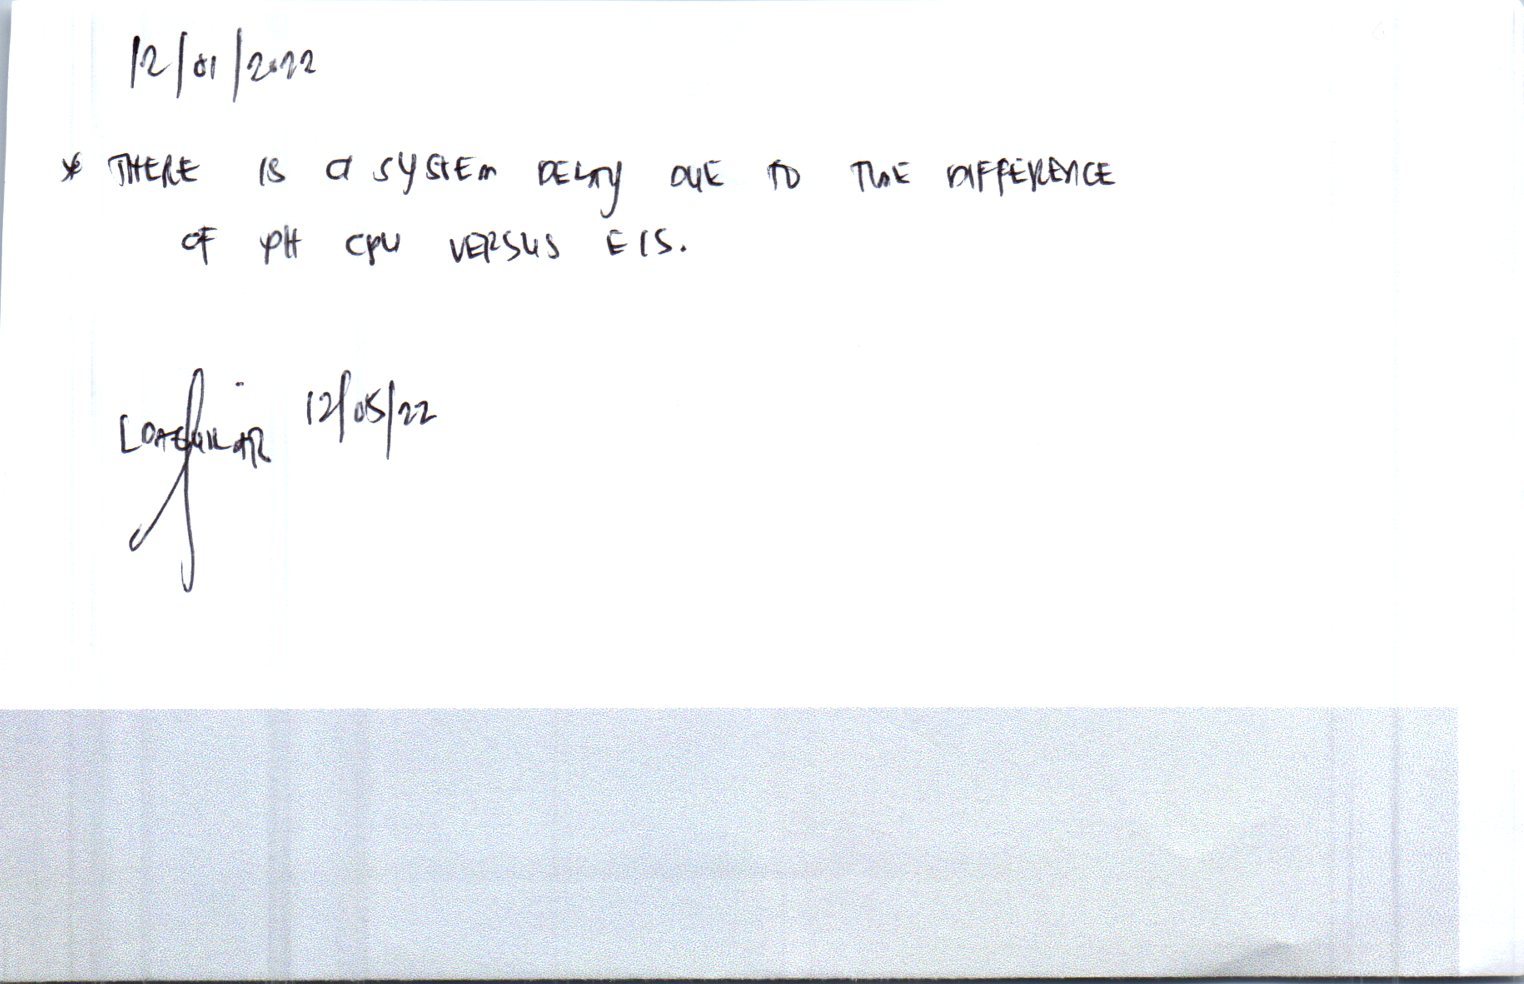 12/01/2022
* THERE IS a SYSTEM DELAY DUE TO TIME DIFFERENCE
OF PH CPU VERSUS EIS.
LDAGUILAR 12/05/22